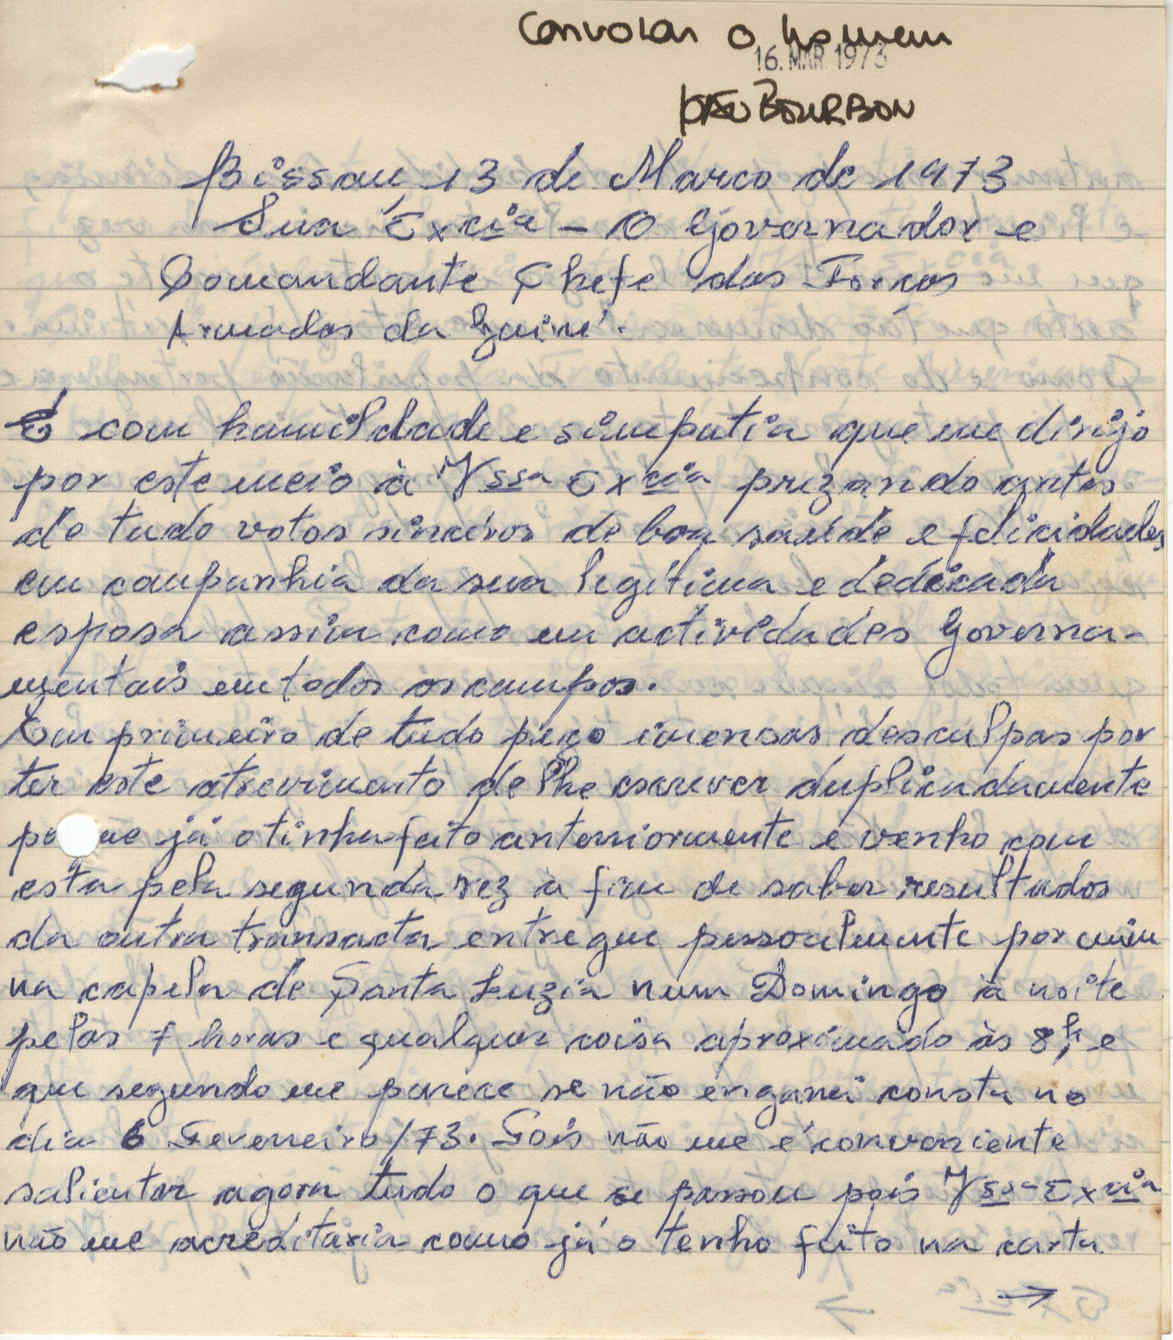 Convocar o homem
16. MAR. 1973
João BOURBON
Bissau, 13 de Março de 1973
Sua Excia - O Governador e
Comandante Chefe das Forças
Armadas da Guiné.
É com humildade e simpatia que me dirijo
por este meio à Vssa Excia prezando antes
de tudo votos sinceros de boa saúde e felicidades
em companhia da sua legítima e dedicada
esposa assim como em actividades Governa-
mentais em todos os campos.
Em primeiro de tudo peço imensas desculpas por
ter este atrevimento de lhe escrever duplicadamente
po ue já o tinha feito anteriormente e venho com
esta pela segunda vez a fim de saber resultados
da outra transacta entregue pessoalmente por mim
na capela de Santa Luzia num Domingo à noite
pelas 7 horas e qualquer coisa aproximado às 8h, e
que segundo me parece se não enganei consta no
dia 6 Fevereiro/73. Pois não me é conveniente
salientar agora tudo o que se passou pois Vssa Excia
não me acreditaria como já o tenho feito na carta
→